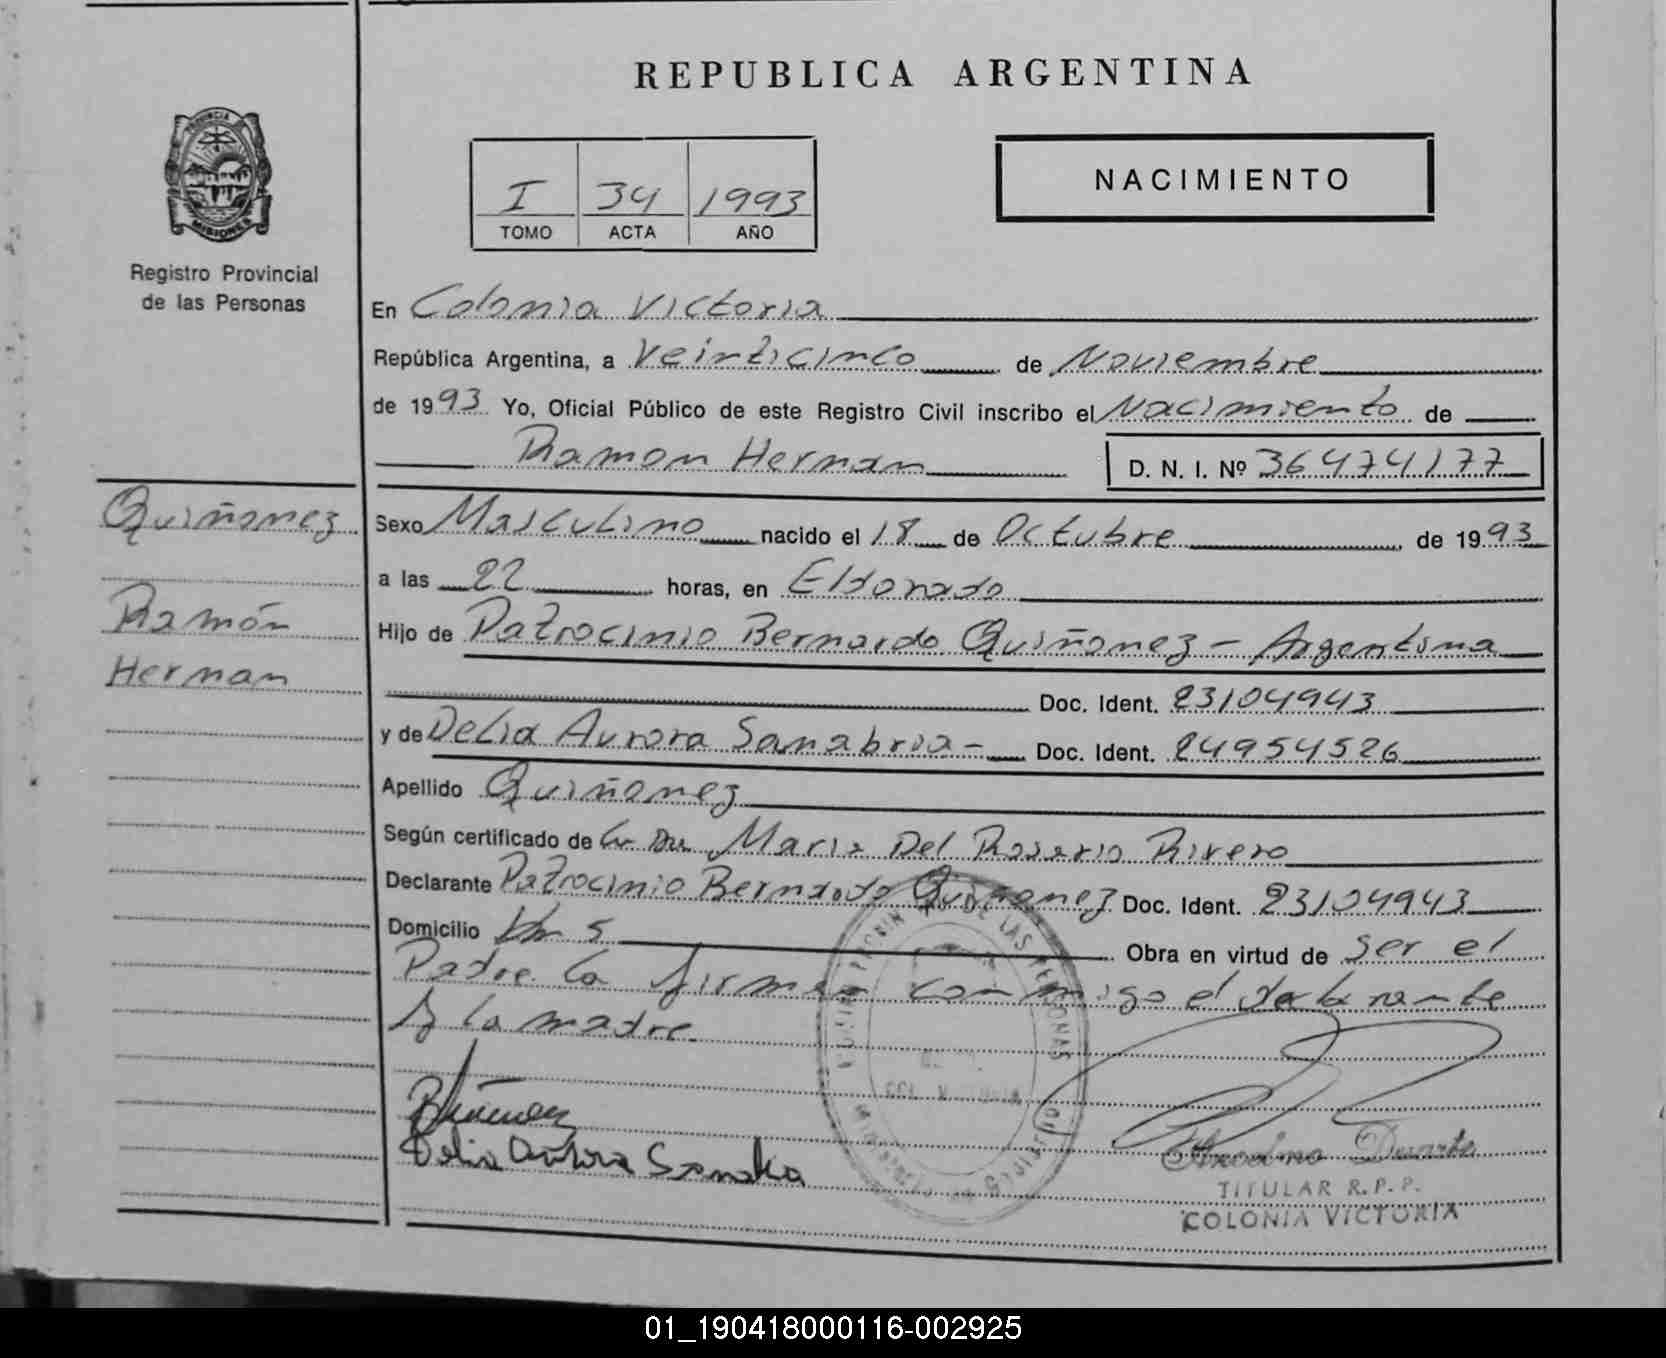 REPUBLICA ARGENTINA
PROVINCIA
MISIONES
Registro Provincial
de las Personas
I 34 1993
TOMO ACTA AÑO
NACIMIENTO
En Colonia Victoria
República Argentina, a Veinticinco de Noviembre
de 1993 Yo, Oficial Público de este Registro Civil inscribo el Nacimiento de
Ramon Hernan D. N. I. Nº 36474177
Quiñonez
Ramón
Hernan
Sexo Masculino nacido el 18 de Octubre de 1993
a las 22 horas, en Eldorado
Hijo de Patrocinio Bernardo Quiñonez - Argentina
Doc. Ident. 23104943
y de Delia Aurora Sanabria - Doc. Ident. 24954526
Apellido Quiñonez
Según certificado de la Maria Del Rosario Rivero
Declarante Patrocinio Bernardo Quiñonez Doc. Ident. 23104943
Domicilio Km 5 Obra en virtud de Ser el
Padre la firman conmigo el declarante
y la madre.
Delia Aurora
Anselmo Duarte
TITULAR R.P.P.
COLONIA VICTORIA
01_190418000116-002925